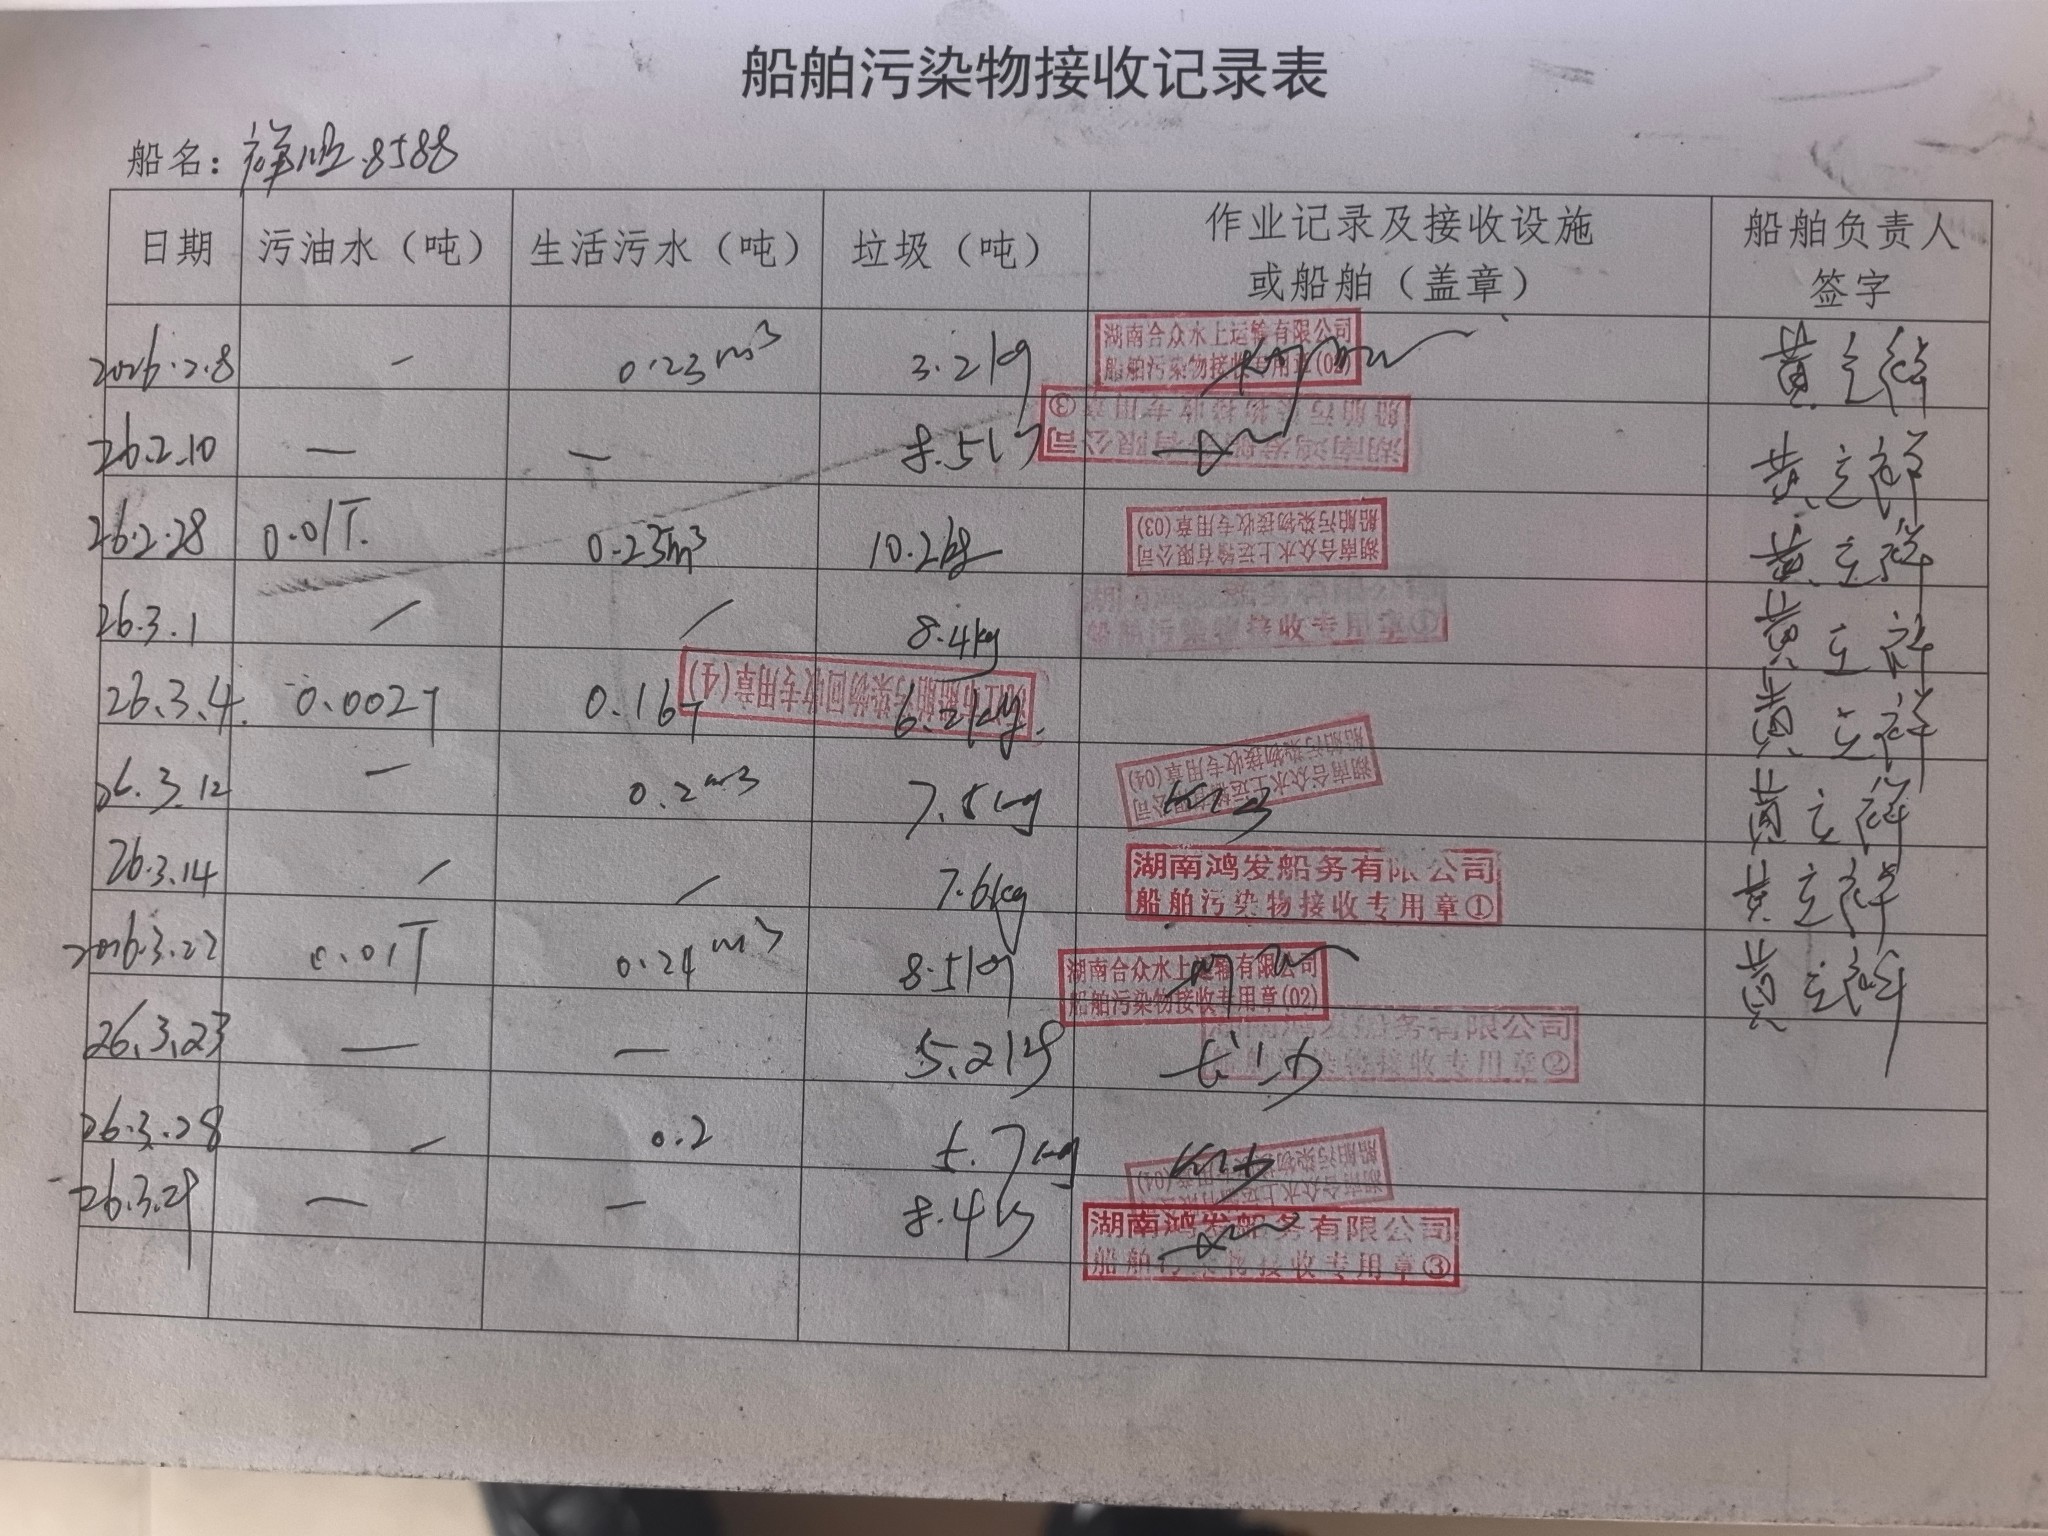 船舶污染物接收记录表
船名: 祥旺8588
日期 污油水（吨） 生活污水（吨） 垃圾（吨） 作业记录及接收设施或船舶（盖章） 船舶负责人签字
2026.2.8 — 0.23m³ 3.2kg 湖南合众水上运输有限公司 船舶污染物接收专用章(02) 黄立祥
26.2.10 — — 8.5kg 湖南鸿发船务有限公司 船舶污染物接收专用章③ 黄立祥
26.2.28 0.01T. 0.23m³ 10.2kg 湖南合众水上运输有限公司 船舶污染物接收专用章(03) 黄立祥
26.3.1 / / 8.4kg 湖南鸿发船务有限公司 船舶污染物接收专用章① 黄立祥
26.3.4. 0.002T 0.16T 6.2kg. 船舶污染物回收专用章(4) 黄立祥
26.3.12 — 0.2m³ 7.8kg 湖南合众水上运输有限公司 船舶污染物接收专用章(04) 黄立祥
26.3.14 / / 7.6kg 湖南鸿发船务有限公司 船舶污染物接收专用章① 黄立祥
2026.3.22 0.01T 0.24m³ 8.5kg 湖南合众水上运输有限公司 船舶污染物接收专用章(02) 黄立祥
26.3.23 — — 5.2kg 长沙 湖南鸿发船务有限公司 船舶污染物接收专用章②
26.3.28 — 0.2 5.7kg 湖南合众水上运输有限公司 船舶污染物接收专用章(04)
26.3.29 — — 8.4kg 湖南鸿发船务有限公司 船舶污染物接收专用章③